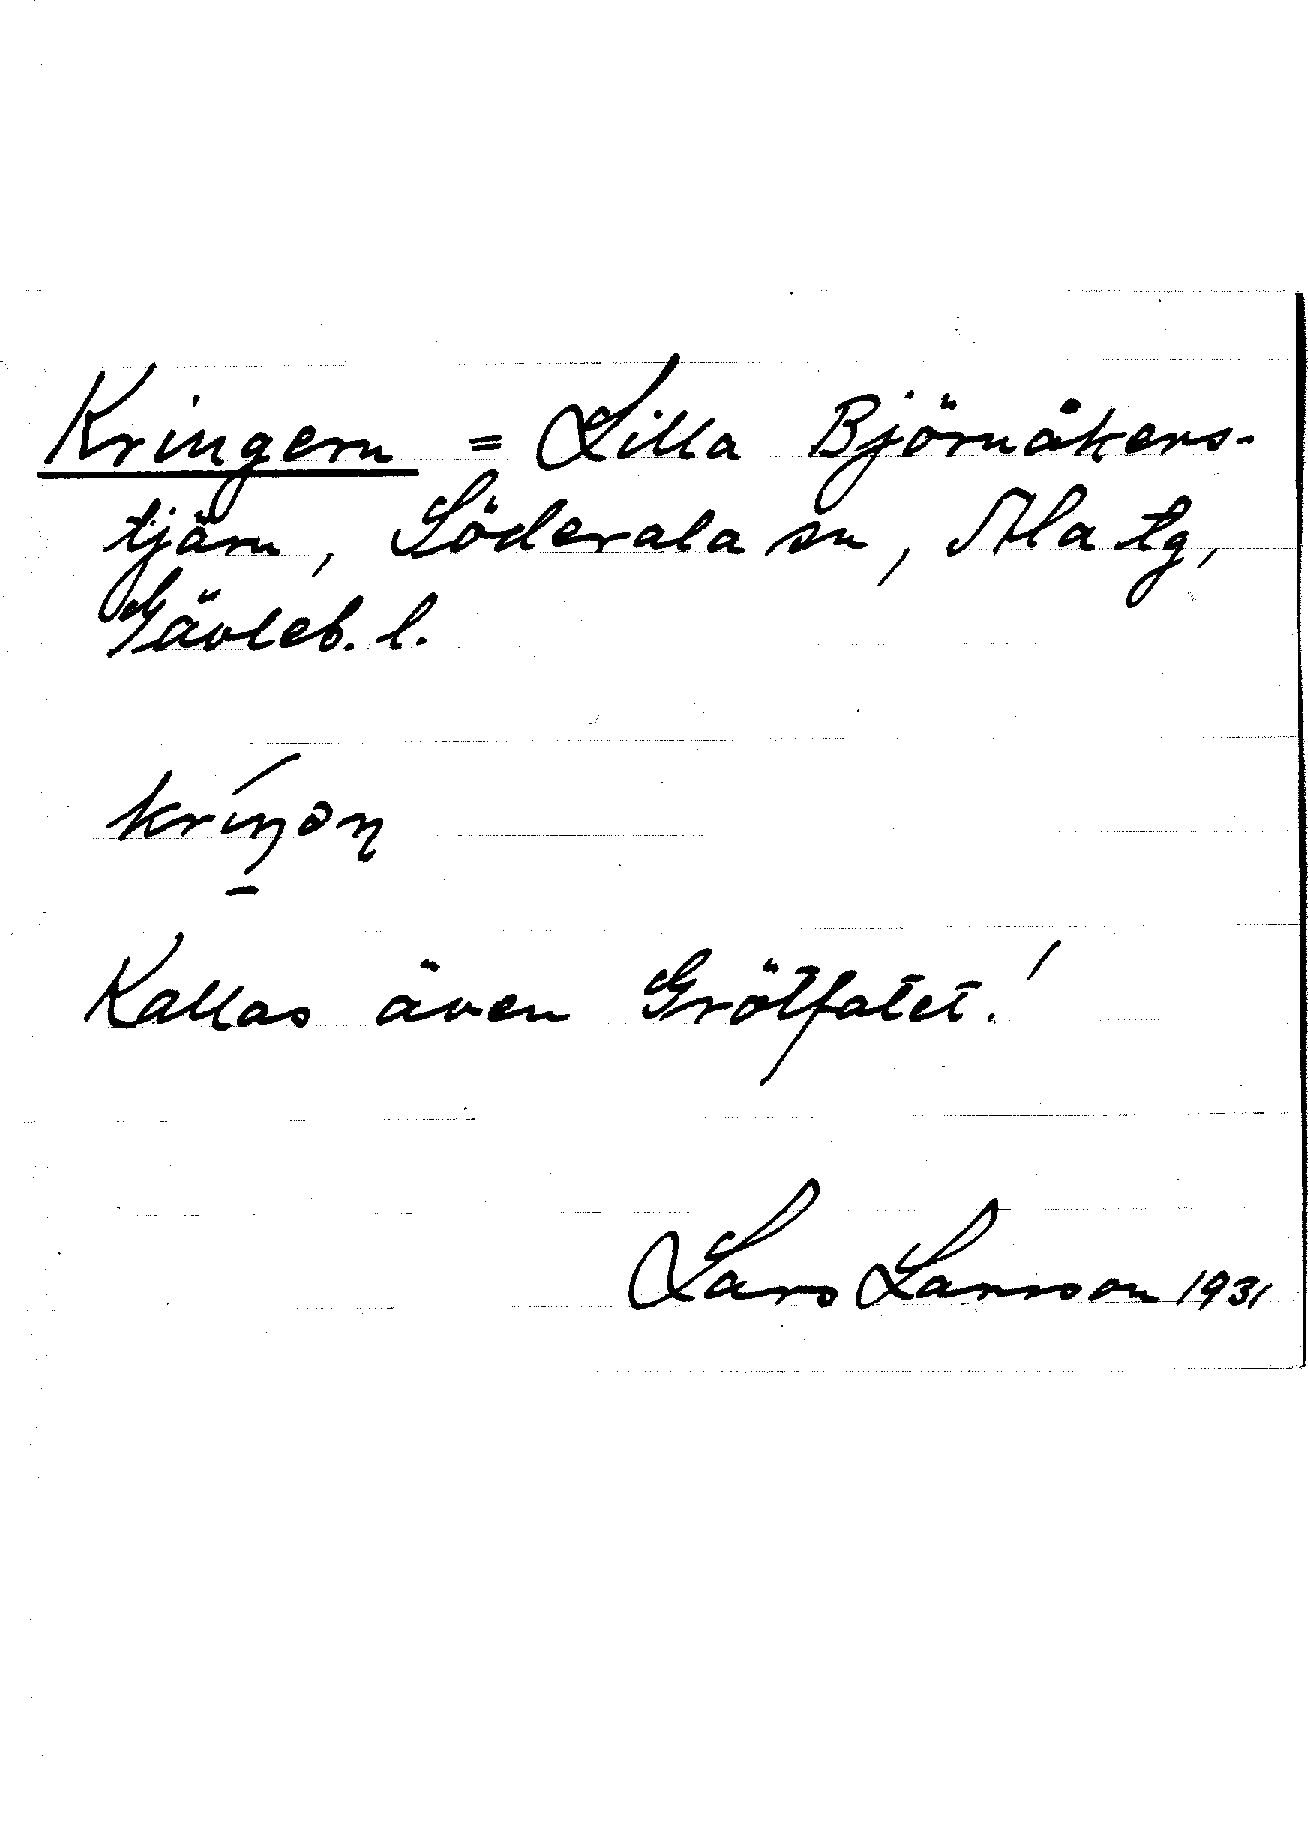 Kringern = Lilla Björnåkers-
tjärn, Söderala sn, Ala tg,
Gävleb. l.
kríŋəɳ
Kallas även Grötfatet!
Lars Larsson 1931